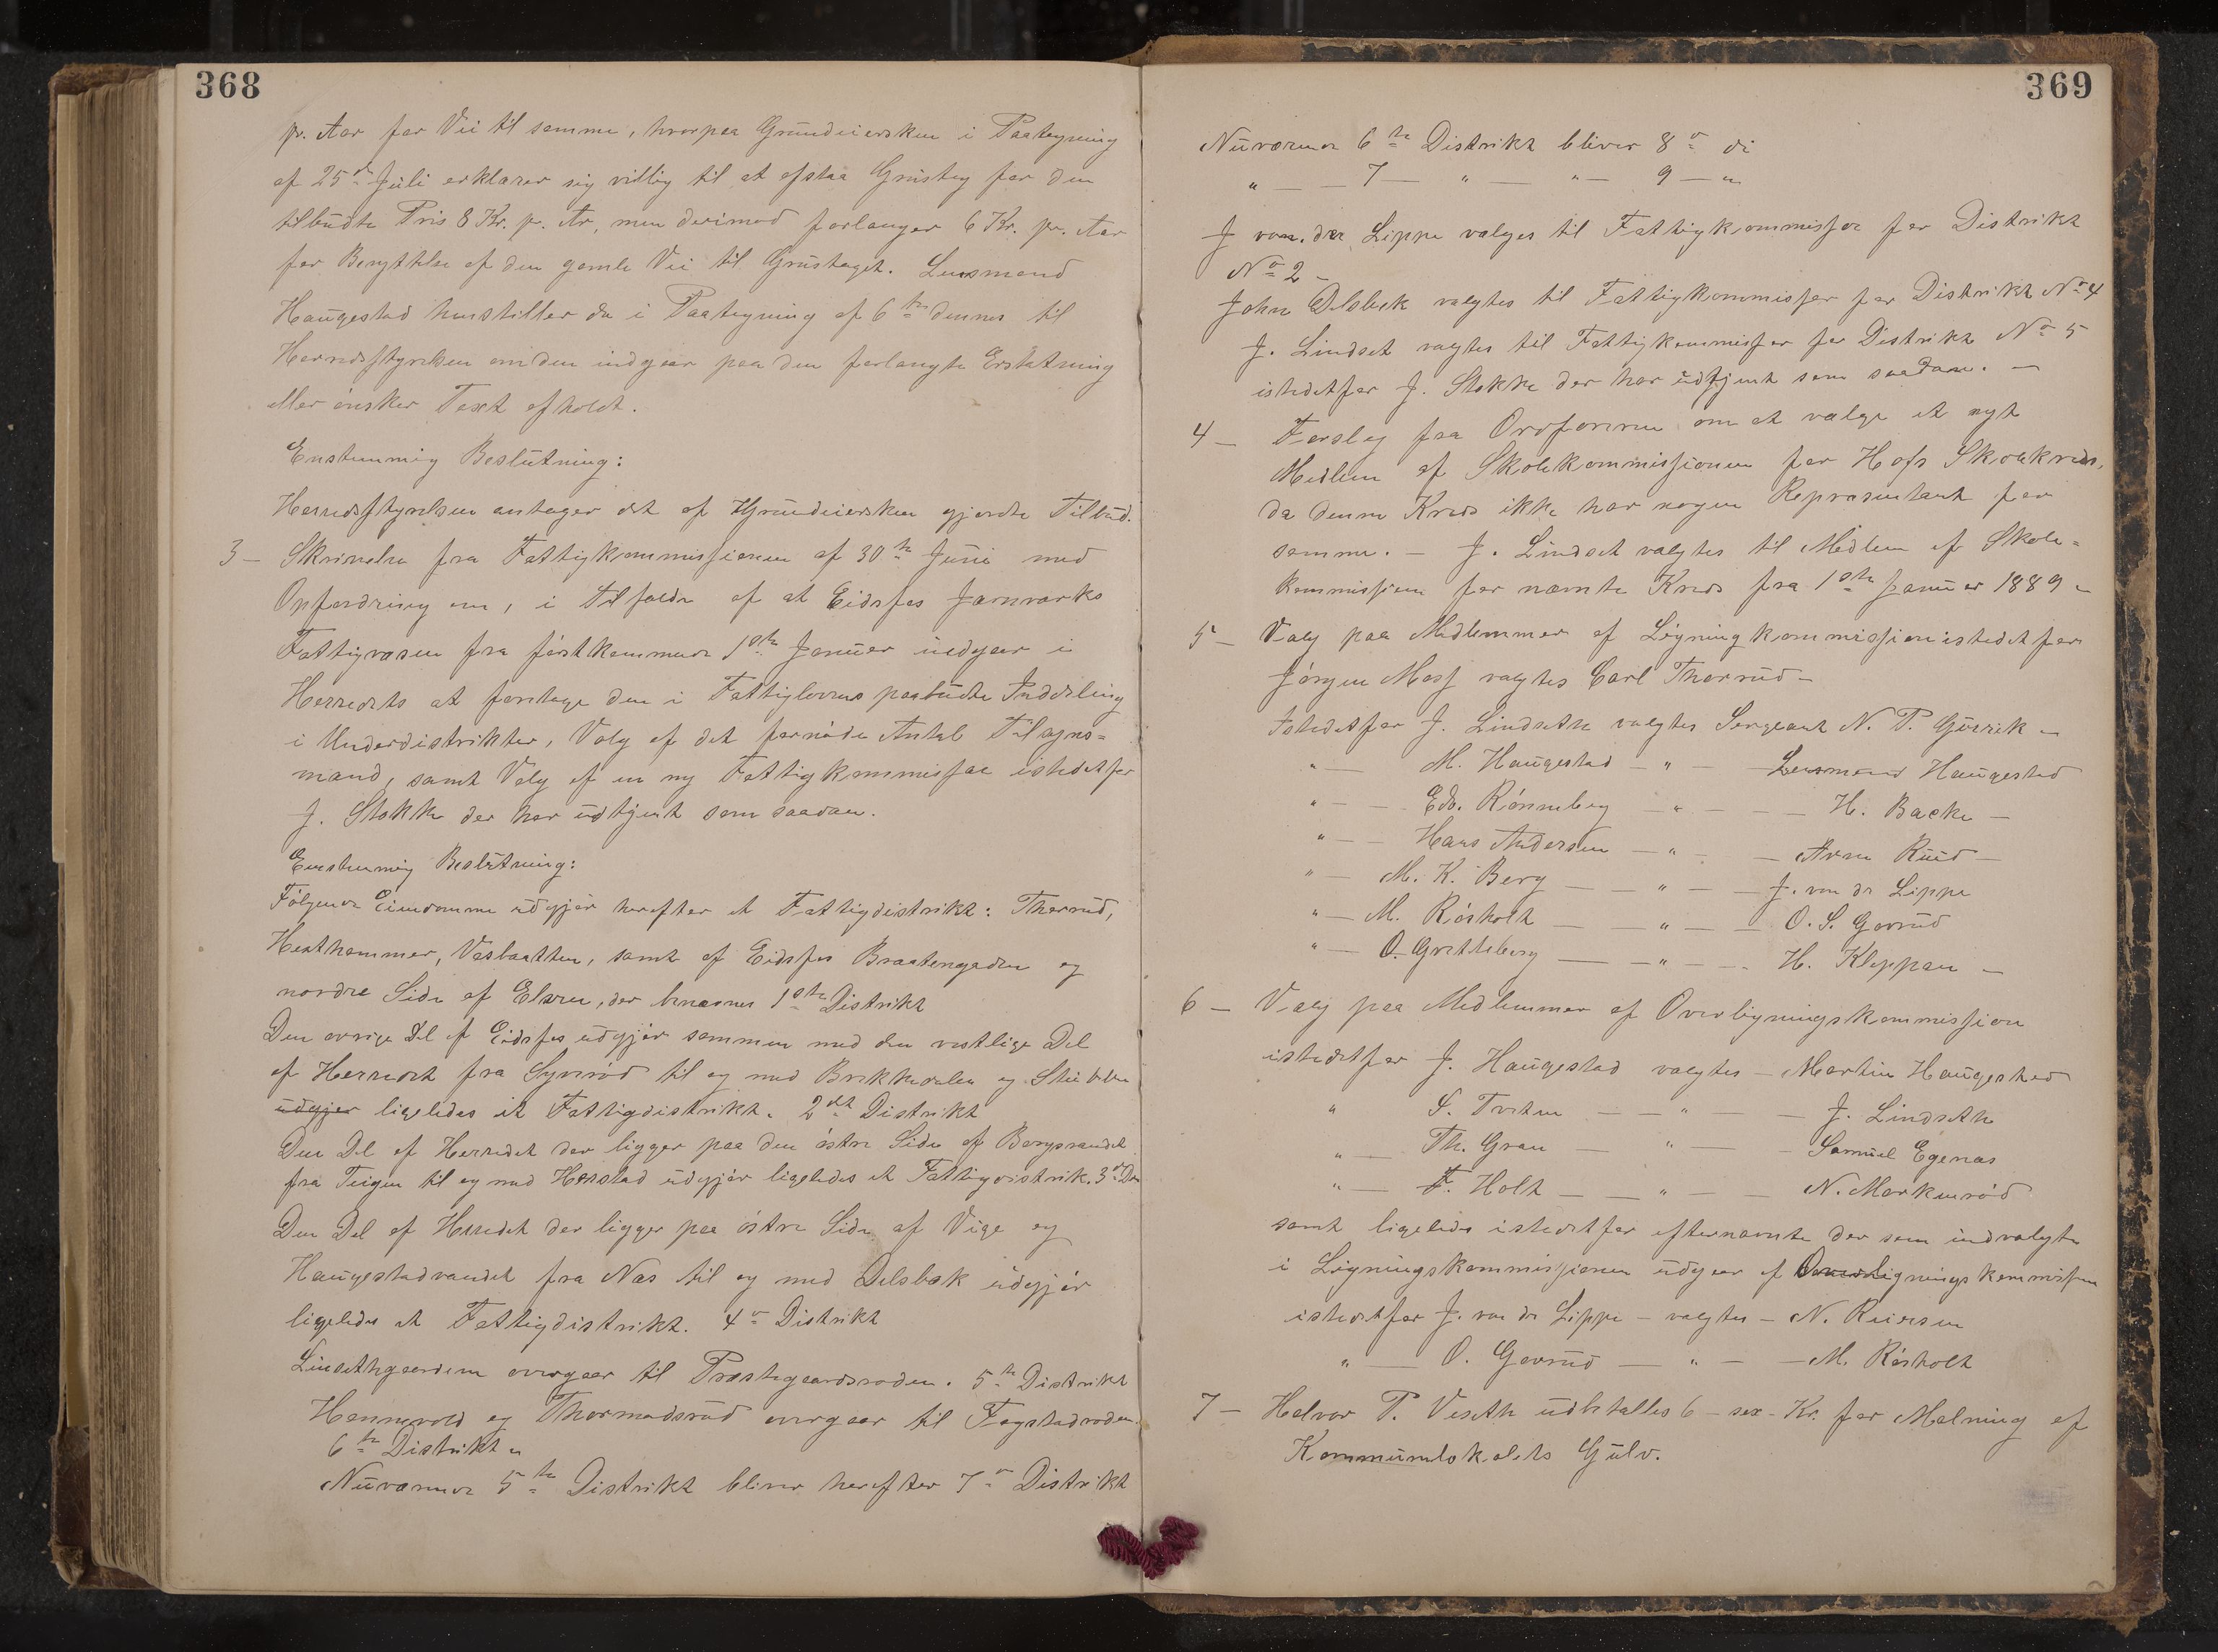 368
pr. Aar for Vei til samme, hvorpaa Grundeiersken i Paategning
af 25de Juli erklærer sig villig til at afstaa Grustag for den
tilbudte Pris 8 Kr. pr. Ar, men derimod forlanger 6 Kr. pr. Aar
for Benyttelse af den gamle Vei til Grustaget. Lensmand
Haugestad henstiller da i Paategning af 6te dennes til
Herredsstyrelsen om den indgaar paa den forlangte Erstatning
eller ønsker Taxt afholdt.
Enstemmig Beslutning:
Herredsstyrelsen antager det af Grundeiersken gjorde Tilbud.
3 – Skrivelse fra Fattigkommissionen af 30te Juni med
Opfordring om, i Tilfælde af at Eidsfos Jernværks
Fattigvæsen fra førstkommende 1ste Januar indgaar i
Herredets at foretage den i Fattigloven paabudte Inddeling
i Underdistrikter, Valg af det fornødne Antal Tilsyns=
mænd, samt Valg af en ny Fattigkommissær istedetfor
J. Stokke der har udtjent som saadan.
Enstemmig Beslutning:
Følgende Eiendomme udgjør herefter et Fattigdistrikt: Therrud,
Hesthammer, Vasbaatten, samt af Eidsfos Braatengaden og
nordre Side af Elven, der benævnes 1ste Distrikt
Den øvrige Del af Eidsfos udgjør sammen med den vestlige Del
af Herredet fra Syverød til og med Brekkedalen og
udgjør ligeledes et Fattigdistrikt. 2det Distrikt
Den Del af Herredet der ligger paa den østre Side af Bergsvandet
fra Teigen til og med Herstad udgjør ligeledes et Fattigdistrik. 3die
Den Del af Herredet der ligger paa østre Side af Vige og
Haugestadvandet fra Næs til og med Delsbæk udgjør
ligeledes et Fattigdistrikt. 4de Distrikt
Lindsethgaardene overgaar til Præstegaardsroden. 5te Distrikt
Hennevold og Thormodsrud overgaar til Fogstadroden.
6te Distrikt
Nuværende 5te Distrikt bliver herefter 7de Distrikt
369
Nuværende 6te Distrikt bliver 8de di
" — — 7 — " — " — 9 — "
J von der Lippe valges til Fattigkommissær for Distrikt
No 2 –
John Delsbek valgtes til Fattigkommissær for Distrikt No 4
J. Lindset valgtes til Fattigkommissær for Distrikt No 5
istedetfor J. Stokke der har udtjent som saadan. —
4 — Forslag fra Ordføreren om at vælge et nyt
Medlem af Skolekommissionen for Hofs Skolekreds,
da denne Kreds ikke har nogen Repræsentant for
samme. — J. Lindset valgtes til Medlem af Skole=
kommission for nævnte Kreds fra 1ste Januar 1889 –
5 — Valg paa Medlemmer af Ligningkommission istedetfor
Jørgen Moss valgtes Carl Thorrud —
Istedetfor J. Lindseth valgtes Sergeant N. P. Gurrik —
" — M. Haugestad — " — Lensmand Haugestad
" — — Edv. Rønneberg — " — — H. Backe —
" — — Hans Andersen — " — — Arne Ruud —
" — M. K. Berg — — " — — J. von der Lippe
" — M. Røsholt — — " — — O. S. Gorrud
" — O. Gretteberg — — " — — H. Kleppan —
6 — Valg paa Medlemmer af Overligningskommission
istedetfor J. Haugestad valgtes — Martin Haugestad
" S. Tveten — — " — — J. Lindseth
" — Th. Gran — " — — Samuel Egenæs
" — F. Holt — — " — — N. Markenrød
samt ligeledes istedetfor efternævnte der som indvalgte
i Ligningskommissionen udgaar af Overligningskommissionen
istedetfor J. von der Lippe — valgtes — N. Reiersen
" — O. Gorrud — " — — M. Røsholt
7 — Halvor P. Veseth udbetalles 6 – sex – Kr. for Malning af
Kommunelokalets Gulv.